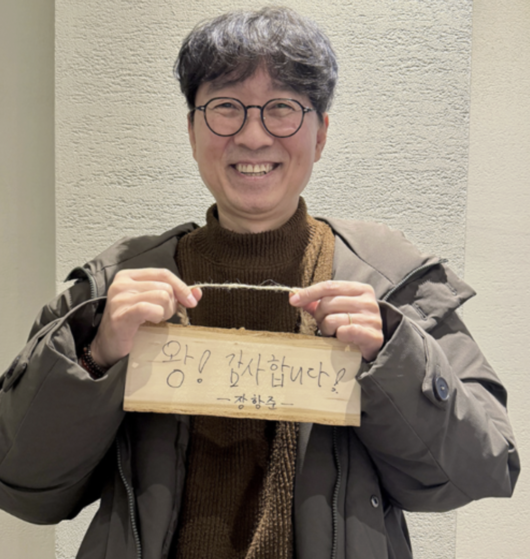 왕! 감사합니다!
- 장항준 -